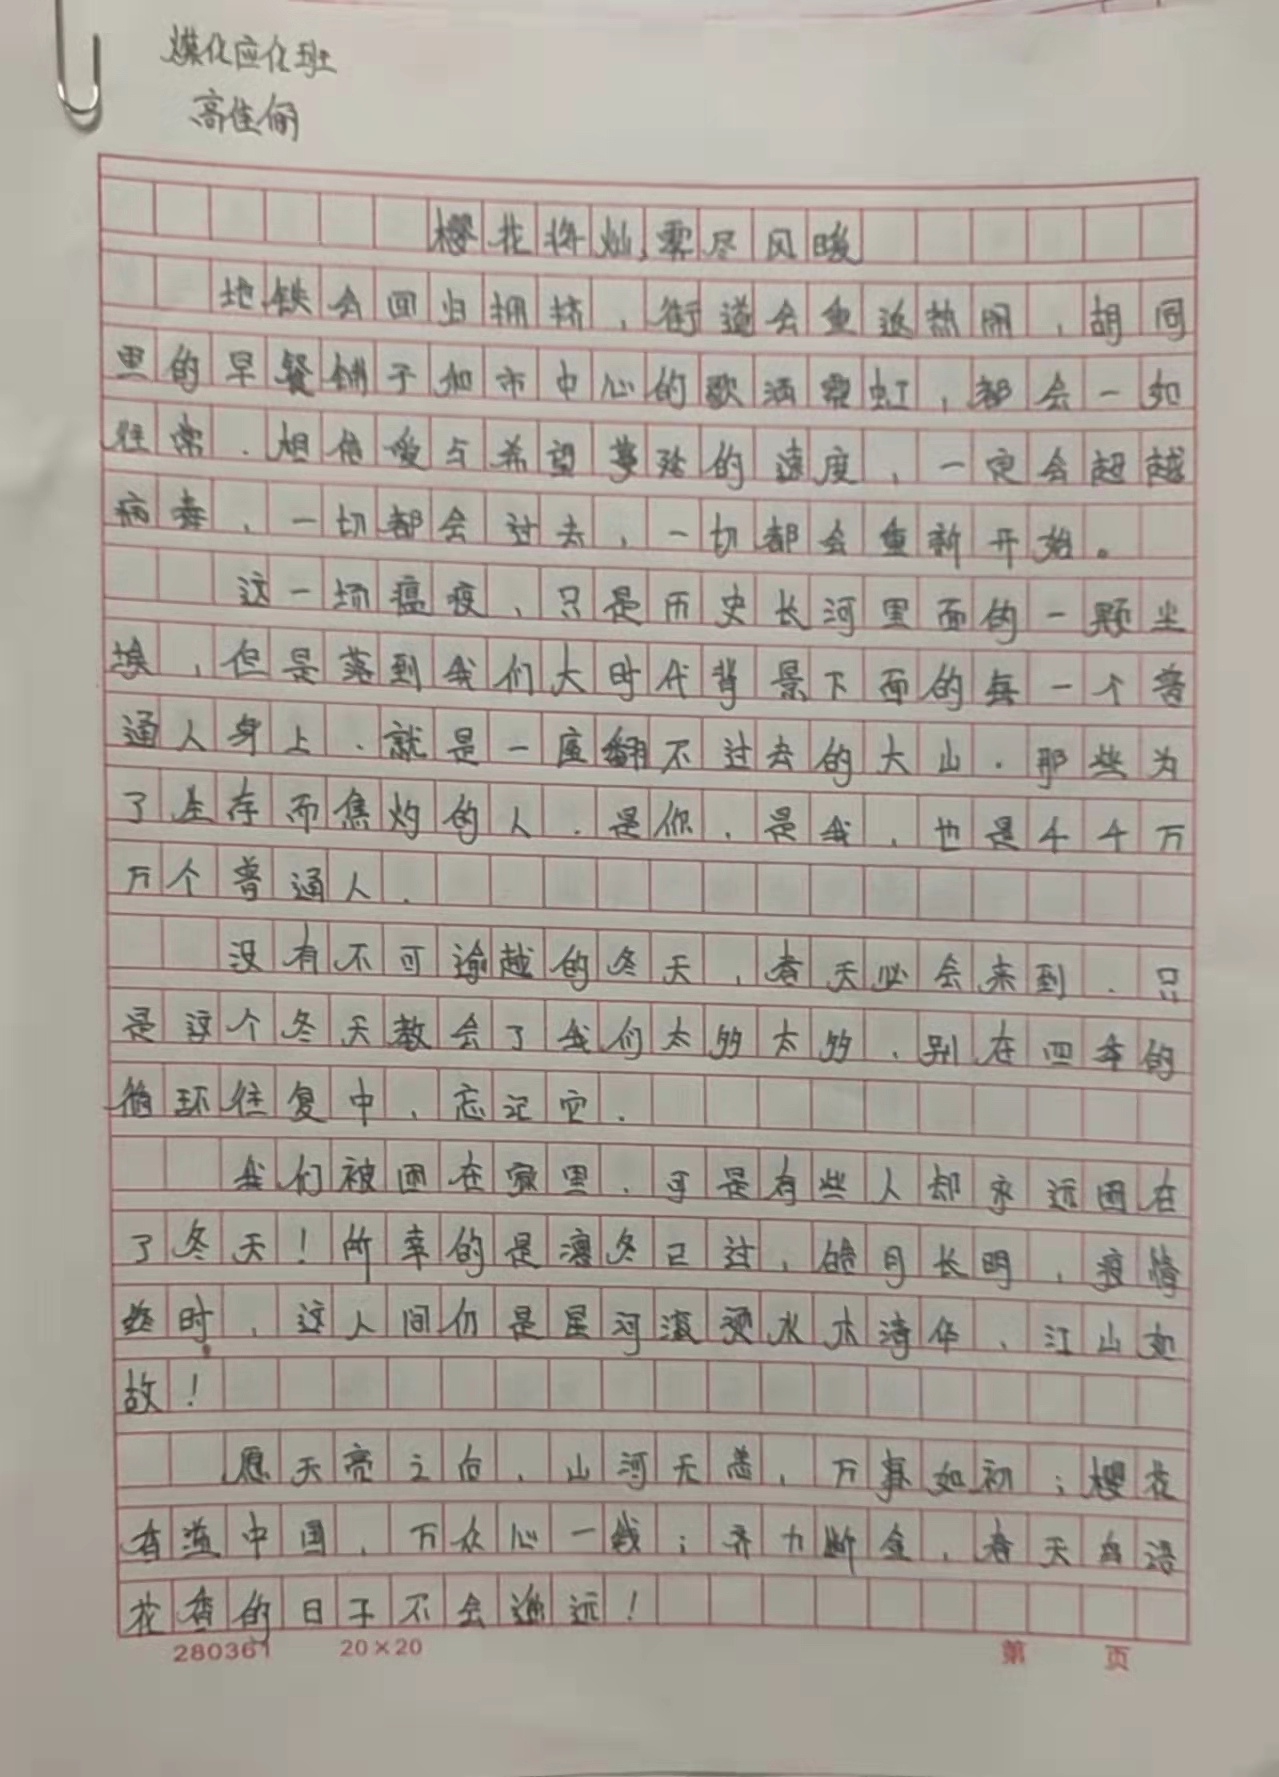 煤化应化班
高佳俏
樱花将灿,雾尽风暖
地铁会回归拥挤,街道会重返热闹,胡同
里的早餐饼子和市中心的歌酒霓虹,都会一如
往常.相信爱与希望蔓延的速度,一定会超越
病毒,一切都会过去,一切都会重新开始。
这一场瘟疫,只是历史长河里面的一颗尘
埃,但是落到我们大时代背景下面的每一个普
通人身上.就是一座翻不过去的大山.那些为
了生存而焦灼的人.是你,是我,也是千千万
万个普通人.
没有不可逾越的冬天,春天必会来到.只
是这个冬天教会了我们太多太多,别在四季的
循环往复中,忘记它.
我们被困在家里,可是有些人却永远困在
了冬天!所幸的是凛冬已过,皓月长明,疫情
终时,这人间仍是星河滚烫水木清华,江山如
故!
愿天亮之后,山河无恙,万事如初;樱花
香溢中国,万众心一线;齐力断金,春天鸟语
花香的日子不会遥远!
280361 20×20 第 页